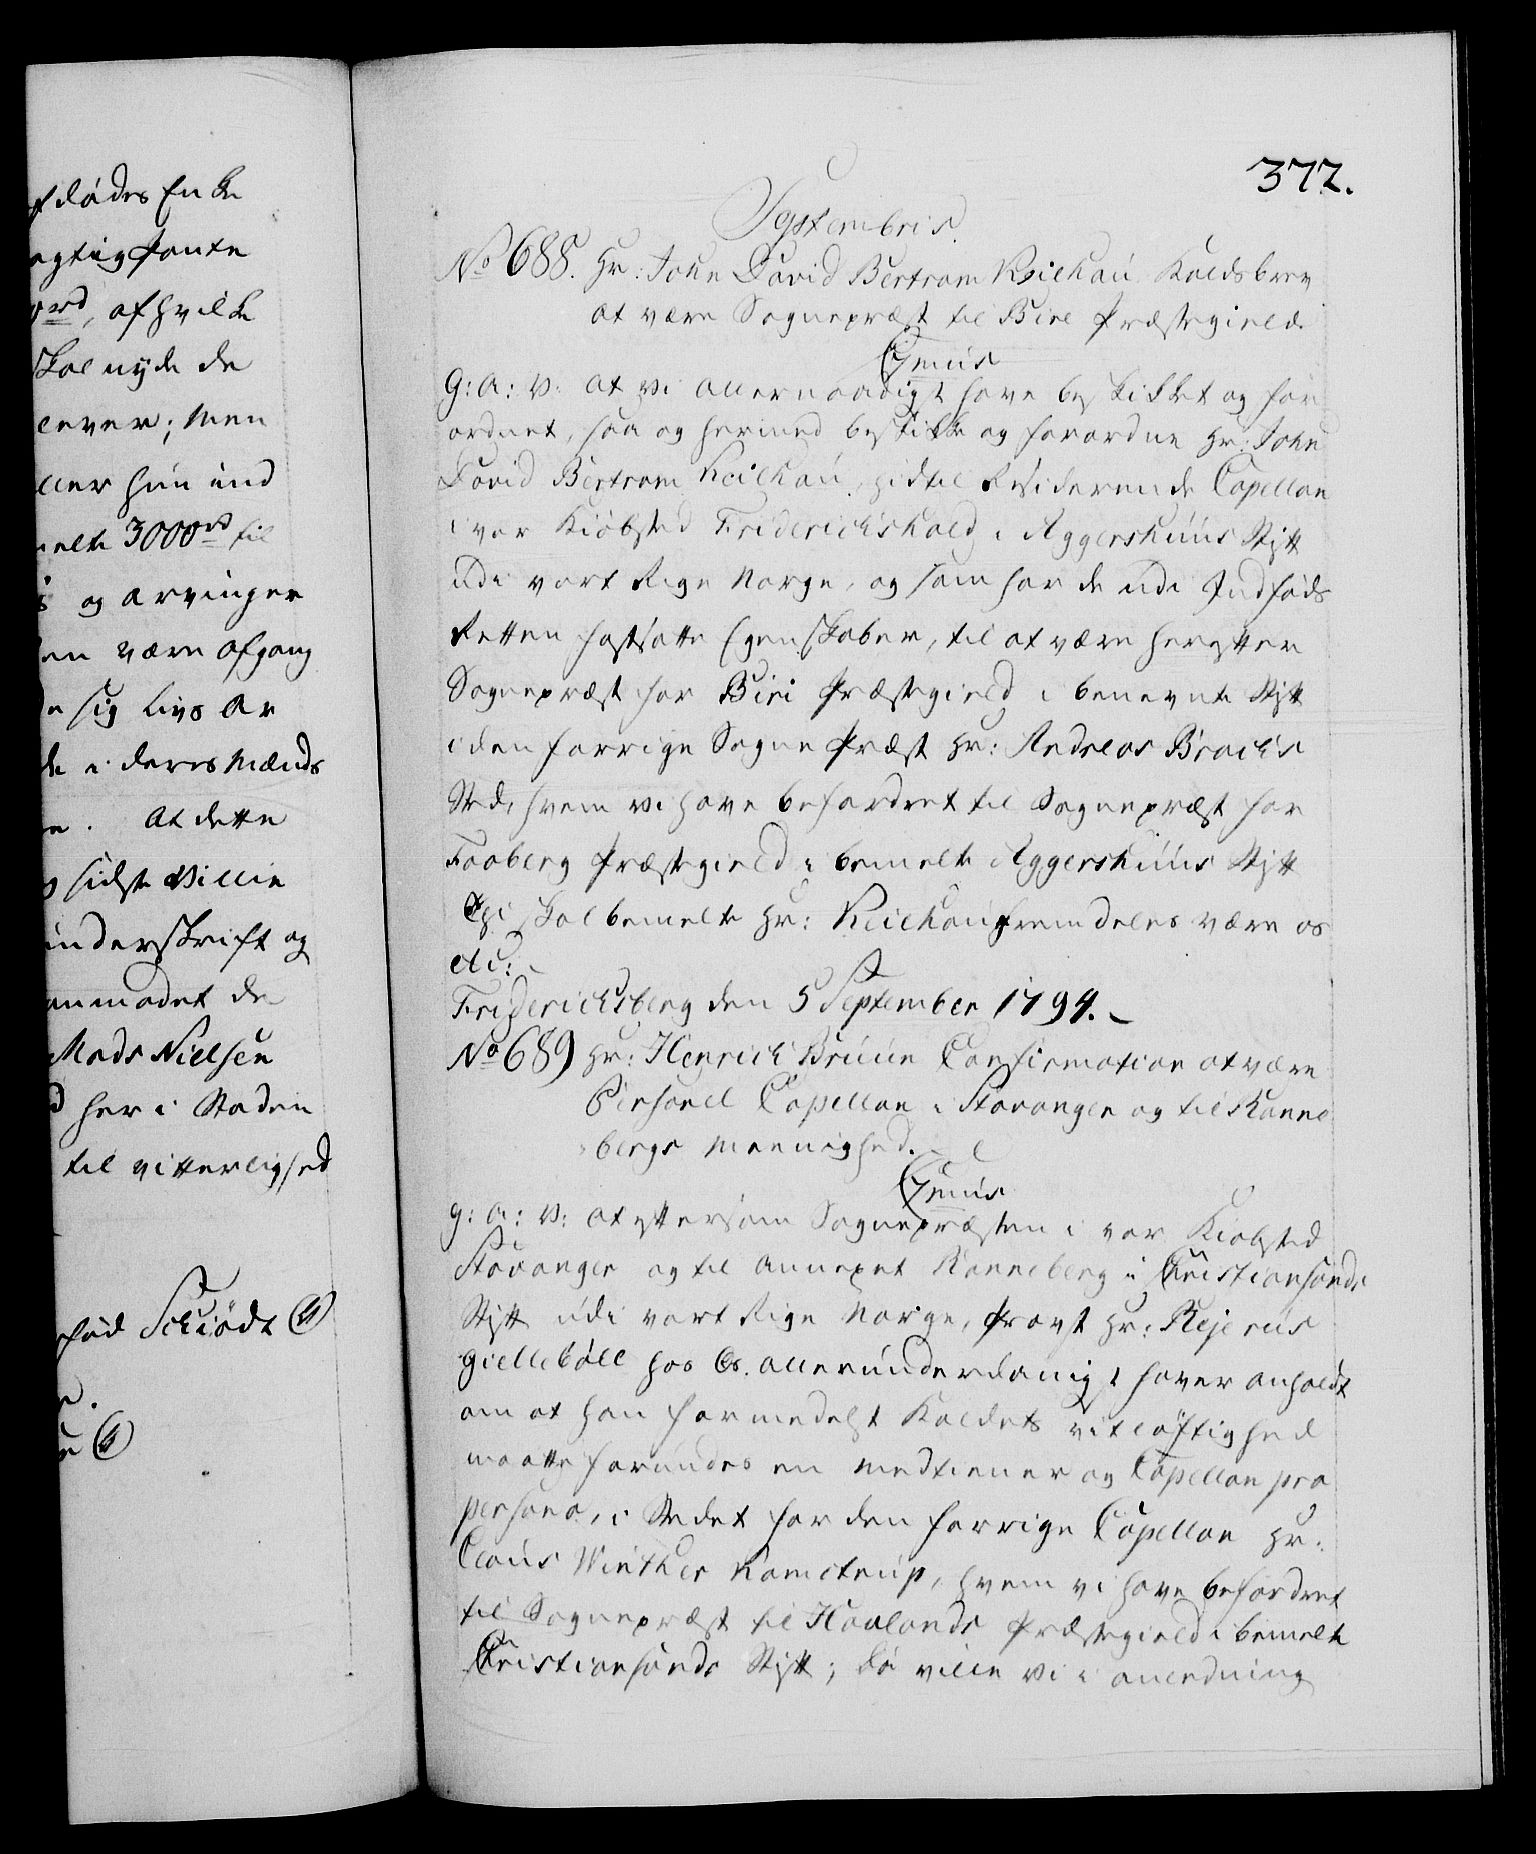 f dødes Enke
agtig Pante
ord, af hvilke
skal nyde de
lever; men
ller hun ind
melte 3000 rd til
s og Arvinger
en være Afgang
de sig Livs Ar
de i deres Mænds
e. At dette
g sidste Villie
underskrift og
anmodet de
Mads Nielsen
d her i Staden
til vitterlighed
Schiødt
372.
Septembris.
No 688. Hr: John David Bertram Keilhau Kaldsbrev
at være Sognepræst til Biri Præstegield
Genus
G: A: V: at Vi allernaadigst have beskikket og for
ordnet, saa og hermed beskikke og forordne Hr: John
David Bertram Keilhau, hidtil Residerende Capellan
i vor Kiøbsted Friderichshald i Aggershuus Stift
udi vort Rige Norge, og som har de udi Indføds
Retten fastsatte Egenskaber, til at være herefter
Sognepræst for Biri Præstegield i benævnte Stift
i den forrige Sogne Præst Hr: Andreas Brochs
Sted, hvem Vi have befordret til Sognepræst for
Faaberg Præstegield i bemelte Aggershuus Stift
Thi skal bemelte Hr: Keilhau fremdeles være os
etc:
Friderichsberg den 5 September 1794.
No 689 Hr: Henrich Bruun Confirmation at være
Personel Capellan i Stavanger og til Ranne
bergs Meenighed.
Genus
G: A: V: at eftersom Sognepræsten i vor Kiøbsted
Stavanger og til Annexet Ranneberg i Christiansands
Stift udi vort Rige Norge, Provst Hr: Rejerus
Giellebøll hos Os allerunderdanigst haver anholdt
om at han formedelst Kaldets vitløftighed
maatte forundes en Medtiener og Capellan pro
persona, i Stedet for den forrige Capellan Hr:
Claus Winther Kamstrup, hvem vi have befordret
til Sognepræst til Havlands Præstegield i bemelte
Christiansands Stift; Da ville Vi i anledning